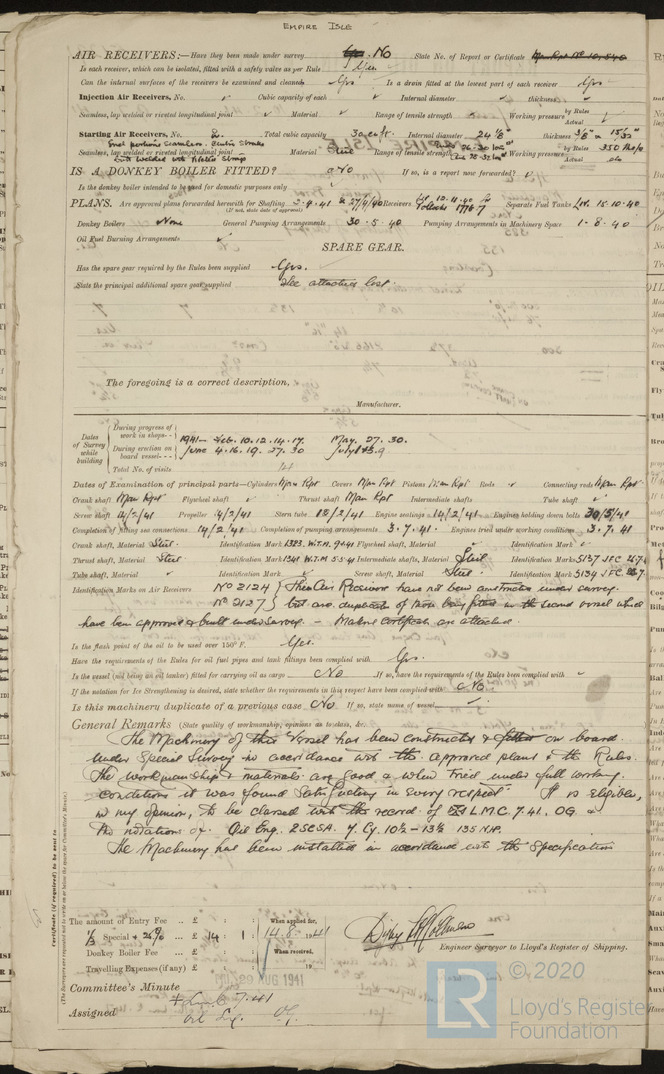 EMPIRE ISLE
AIR RECEIVERS:—Have they been made under survey No State No. of Report or Certificate
Is each receiver, which can be isolated, fitted with a safety valve as per Rule Yes
Can the internal surfaces of the receivers be examined and cleaned Yes Is a drain fitted at the lowest part of each receiver Yes
Injection Air Receivers, No. Cubic capacity of each Internal diameter thickness
Seamless, lap welded or riveted longitudinal joint Material Range of tensile strength Working pressure by Rules Actual
Starting Air Receivers, No. 2. Total cubic capacity 30 cu ft. Internal diameter 24 1/8" thickness
Seamless, lap welded or riveted longitudinal joint Material Steel Range of tensile strength Working pressure by Rules 350 lbs/□" Actual do
IS A DONKEY BOILER FITTED? No If so, is a report now forwarded?
Is the donkey boiler intended to be used for domestic purposes only
PLANS. Are approved plans forwarded herewith for Shafting Receivers Separate Fuel Tanks Liv. 15.10.40
(If not, state date of approval)
Donkey Boilers None General Pumping Arrangements 30.5.40 Pumping Arrangements in Machinery Space 1.8.40
Oil Fuel Burning Arrangements
SPARE GEAR.
Has the spare gear required by the Rules been supplied Yes.
State the principal additional spare gear supplied See attached list.
The foregoing is a correct description,
Manufacturer.
Dates of Survey while building
During progress of work in shops-- 1941- Feb. 10. 12. 14. 17. May. 27. 30.
During erection on board vessel--- June 4. 16. 19. 27. 30 July
Total No. of visits 14
Dates of Examination of principal parts—Cylinders Man Rpt Covers Man Rpt Pistons Man Rpt Rods Connecting rods Man Rpt.
Crank shaft Man Rpt Flywheel shaft Thrust shaft Man Rpt Intermediate shafts Tube shaft
Screw shaft 14/2/41 Propeller 14/2/41 Stern tube Engine seatings 14/2/41 Engines holding down bolts 30/5/41
Completion of fitting sea connections 14/2/41 Completion of pumping arrangements 3.7.41. Engines tried under working conditions 3.7.41
Crank shaft, Material Steel. Identification Mark Flywheel shaft, Material Identification Mark
Thrust shaft, Material Steel Identification Mark Intermediate shafts, Material Steel Identification Marks 5137 JFC
Tube shaft, Material Identification Mark Screw shaft, Material Steel. Identification Mark 5134 JFC
Identification Marks on Air Receivers No 2124 These Air Receivers have not been constructed under survey.
No 2127 but are duplicate of those being fitted in the second vessel which
have been approved & built under survey. - Makers certificates are attached.
Is the flash point of the oil to be used over 150° F. Yes.
Have the requirements of the Rules for oil fuel pipes and tank fittings been complied with Yes.
Is the vessel (not being an oil tanker) fitted for carrying oil as cargo No If so, have the requirements of the Rules been complied with
If the notation for Ice Strengthening is desired, state whether the requirements in this respect have been complied with No
Is this machinery duplicate of a previous case No If so, state name of vessel
General Remarks (State quality of workmanship, opinions as to class, &c.
The Machinery of this Vessel has been constructed & fitted on board
under Special Survey in accordance with the approved plans & the Rules.
The workmanship & materials are good & when tried under full working
conditions it was found satisfactory in every respect. It is eligible,
in my opinion, to be classed with the record of L.M.C. 7.41. OG &
the notations of. Oil Eng. 2SCSA. 7 Cy. 10½ - 13½ 135 N.H.P.
The Machinery has been installed in accordance with the Specification
Certificate (if required) to be sent to
(The Surveyors are requested not to write on or below the space for Committee's Minute.)
The amount of Entry Fee .. £ : : When applied for,
Special .. £ 14 : 1 : 14.8.1941
Donkey Boiler Fee .. £ : : When received,
Travelling Expenses (if any) £ : : 19
Engineer Surveyor to Lloyd's Register of Shipping.
AUG 1941
Committee's Minute
Assigned + Lmc 7.41
Oil Eng. OG.
LR
© 2020
Lloyd's Register
Foundation